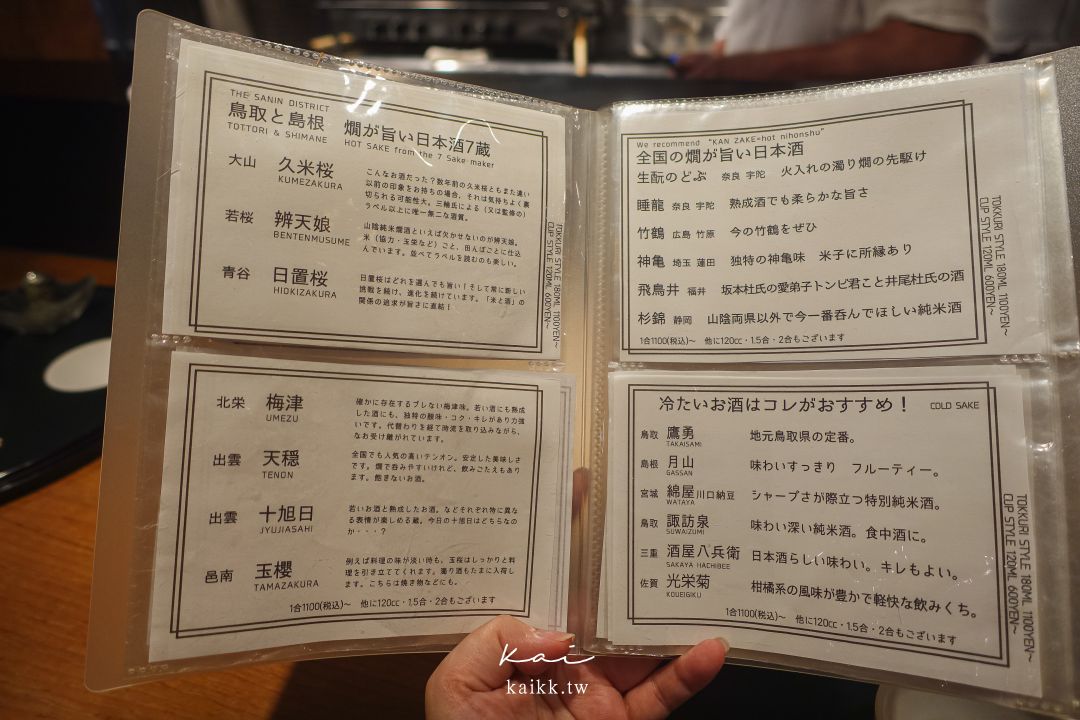 THE SANIN DISTRICT
鳥取と島根 燗が旨い日本酒7蔵
TOTTORI & SHIMANE HOT SAKE from the 7 Sake maker
大山 久米桜
KUMEZAKURA
こんなお酒だった?数年前の久米桜ともまた違い
以前の印象をお持ちの場合、それは気持ちよく裏
切られる可能性大。三輪氏による(又は監修の)
ラベル以上に唯一無二な酒質。
若桜 辨天娘
BENTENMUSUME
山陰純米燗酒といえば欠かせないのが辨天娘。
米(協力・玉栄など)ごと、田んぼごとに仕込
んでいます。並べてラベルを読むのも楽しい。
青谷 日置桜
HIOKIZAKURA
日置桜はどれを選んでも旨い!そして常に新しい
挑戦を続け、進化を続けています。「米と酒」の
関係の追求が旨さに直結!
TOKKURI STYLE 180ML 1100YEN~
CUP STYLE 120ML 600YEN~
北栄 梅津
UMEZU
確かに存在するブレない梅津味。若い酒にも熟成
した酒にも、独特の酸味・コク・キレがあり力強
いです。代替わりを経て時流を取り込みながら、
なお受け継がれています。
出雲 天穏
TENON
全国でも人気の高いテンオン。安定した美味しさ
です。燗で呑みやすいけれど、飲みごたえもあり
ます。飽きないお酒。
出雲 十旭日
JYUJIASAHI
若いお酒と熟成したお酒。などそれぞれ特に異な
る表情が楽しめる蔵。今日の十旭日はどちらなの
か・・・?
邑南 玉櫻
TAMAZAKURA
例えば料理の味が淡い時も、玉桜はしっかりと料
理を引き立ててくれます。濁り酒もたまに入荷し
ます。こちらは焼き物などにも。
1合1100(税込)~ 他に120cc・1.5合・2合もございます
We recommend "KAN ZAKE=hot nihonshu"
全国の燗が旨い日本酒
生酛のどぶ 奈良 宇陀 火入れの濁り燗の先駆け
睡龍 奈良 宇陀 熟成酒でも柔らかな旨さ
竹鶴 広島 竹原 今の竹鶴をぜひ
神亀 埼玉 蓮田 独特の神亀味 米子に所縁あり
飛鳥井 福井 坂本杜氏の愛弟子トンビ君こと井尾杜氏の酒
杉錦 静岡 山陰両県以外で今一番呑んでほしい純米酒
1合1100(税込)~ 他に120cc・1.5合・2合もございます
TOKKURI STYLE 180ML 1100YEN~
CUP STYLE 120ML 600YEN~
冷たいお酒はコレがおすすめ! COLD SAKE
鳥取 鷹勇 地元鳥取県の定番。
TAKAISAMI
島根 月山 味わいすっきり フルーティー。
GASSAN
宮城 綿屋川口納豆 シャープさが際立つ特別純米酒。
WATAYA
鳥取 諏訪泉 味わい深い純米酒。食中酒に。
SUWAIZUMI
三重 酒屋八兵衛 日本酒らしい味わい。キレもよい。
SAKAYA HACHIBEE
佐賀 光栄菊 柑橘系の風味が豊かで軽快な飲みくち。
KOUEIGIKU
1合1100(税込)~ 他に120cc・1.5合・2合もございます
TOKKURI STYLE 180ML 1100YEN~
CUP STYLE 120ML 600YEN~
kai
kaikk.tw